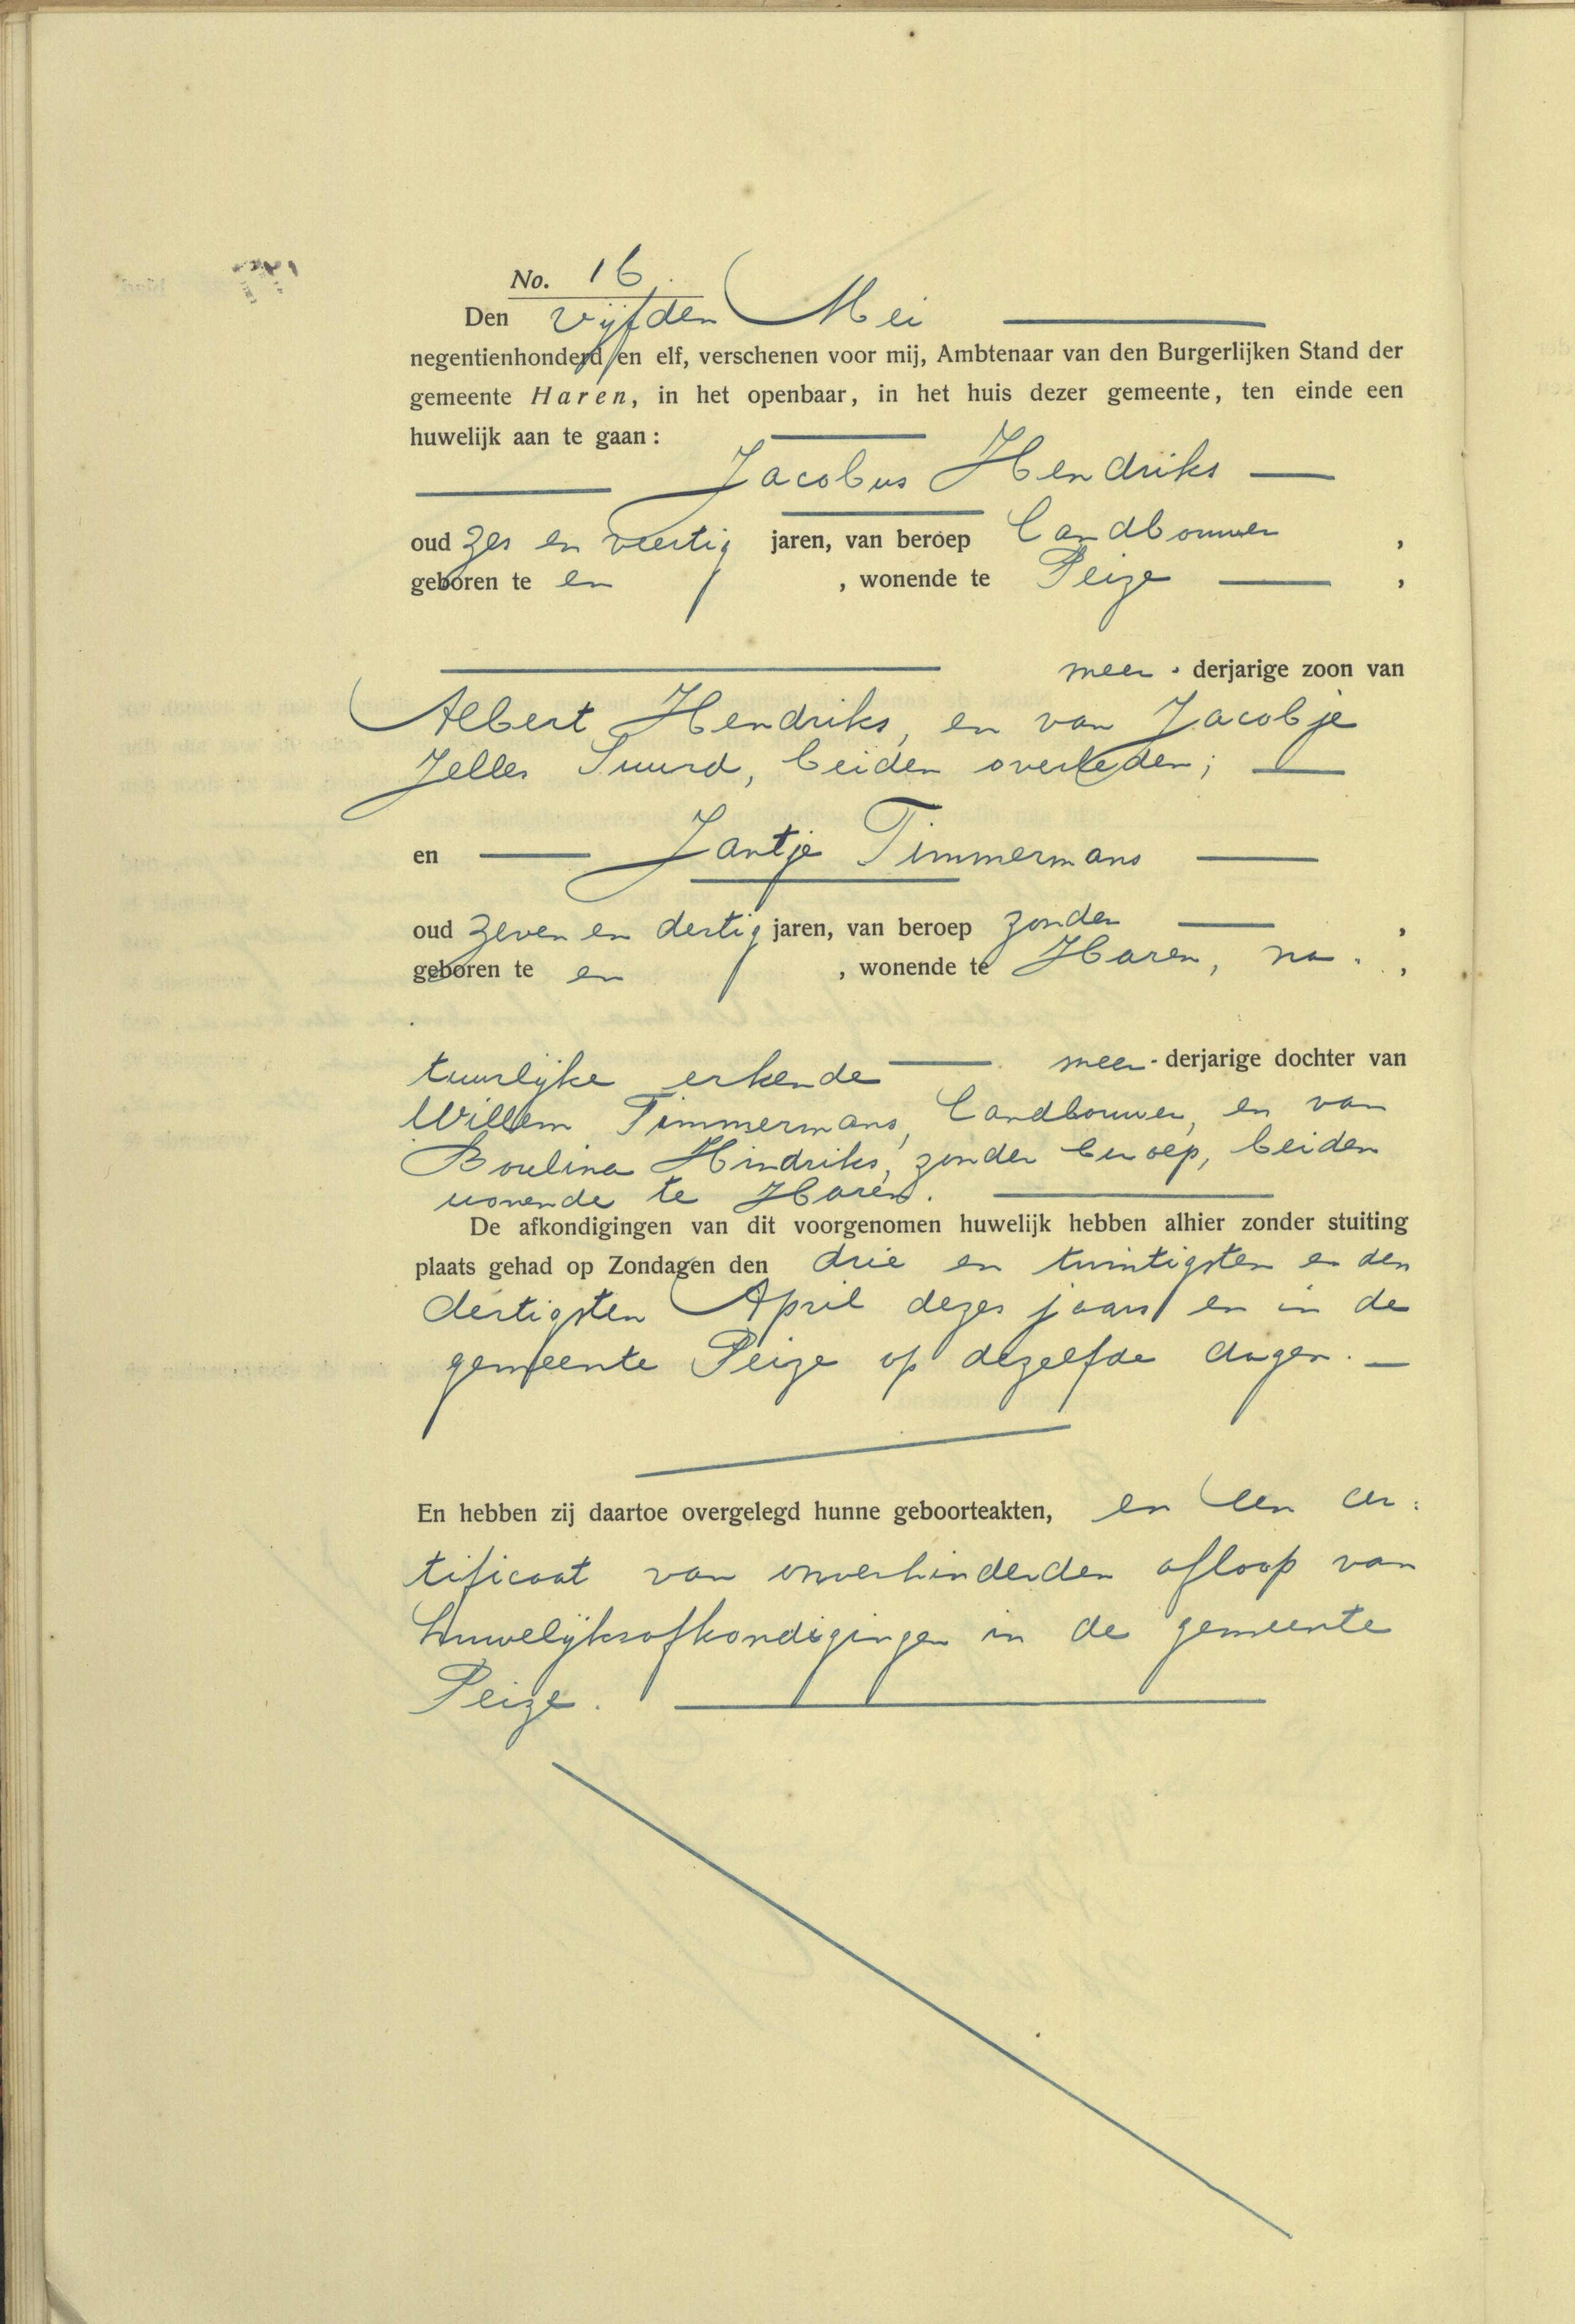 No. 16.
Den vijfden Mei
negentienhonderd en elf, verschenen voor mij, Ambtenaar van den Burgerlijken Stand der
gemeente Haren, in het openbaar, in het huis dezer gemeente, ten einde een
huwelijk aan te gaan:
Jacobus Hendriks
oud zes en veertig jaren, van beroep landbouwer,
geboren te en , wonende te Peize ,
meer-derjarige zoon van
Albert Hendriks, en van Jacobje
Jelles Suurd, beiden overleden;
en Jantje Timmermans
oud zeven en dertig jaren, van beroep zonder ,
geboren te en , wonende te Haren, na- ,
tuurlijke erkende meer-derjarige dochter van
Willem Timmermans, landbouwer, en van
Boulina Hindriks, zonder beroep, beiden
wonende te Haren.
De afkondigingen van dit voorgenomen huwelijk hebben alhier zonder stuiting
plaats gehad op Zondagen den drie en twintigsten en den
dertigsten April dezes jaars en in de
gemeente Peize op dezelfde dagen.
En hebben zij daartoe overgelegd hunne geboorteakten, en een cer:
tificaat van onverhinderden afloop van
huwelijksafkondigingen in de gemeente
Peize.